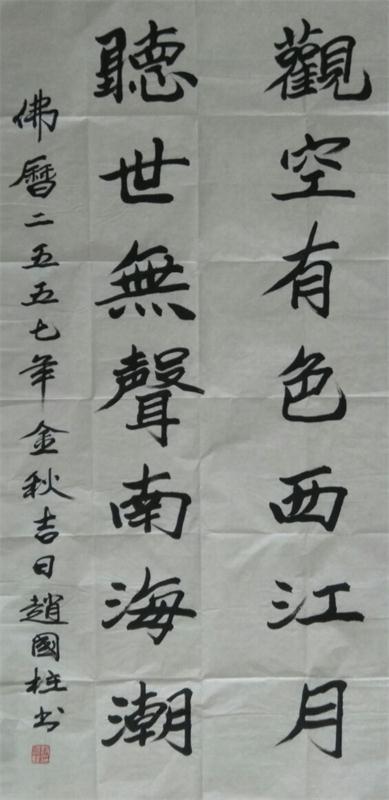 觀空有色西江月
聽世無聲南海潮
佛曆二五五七年金秋吉日趙國柱书